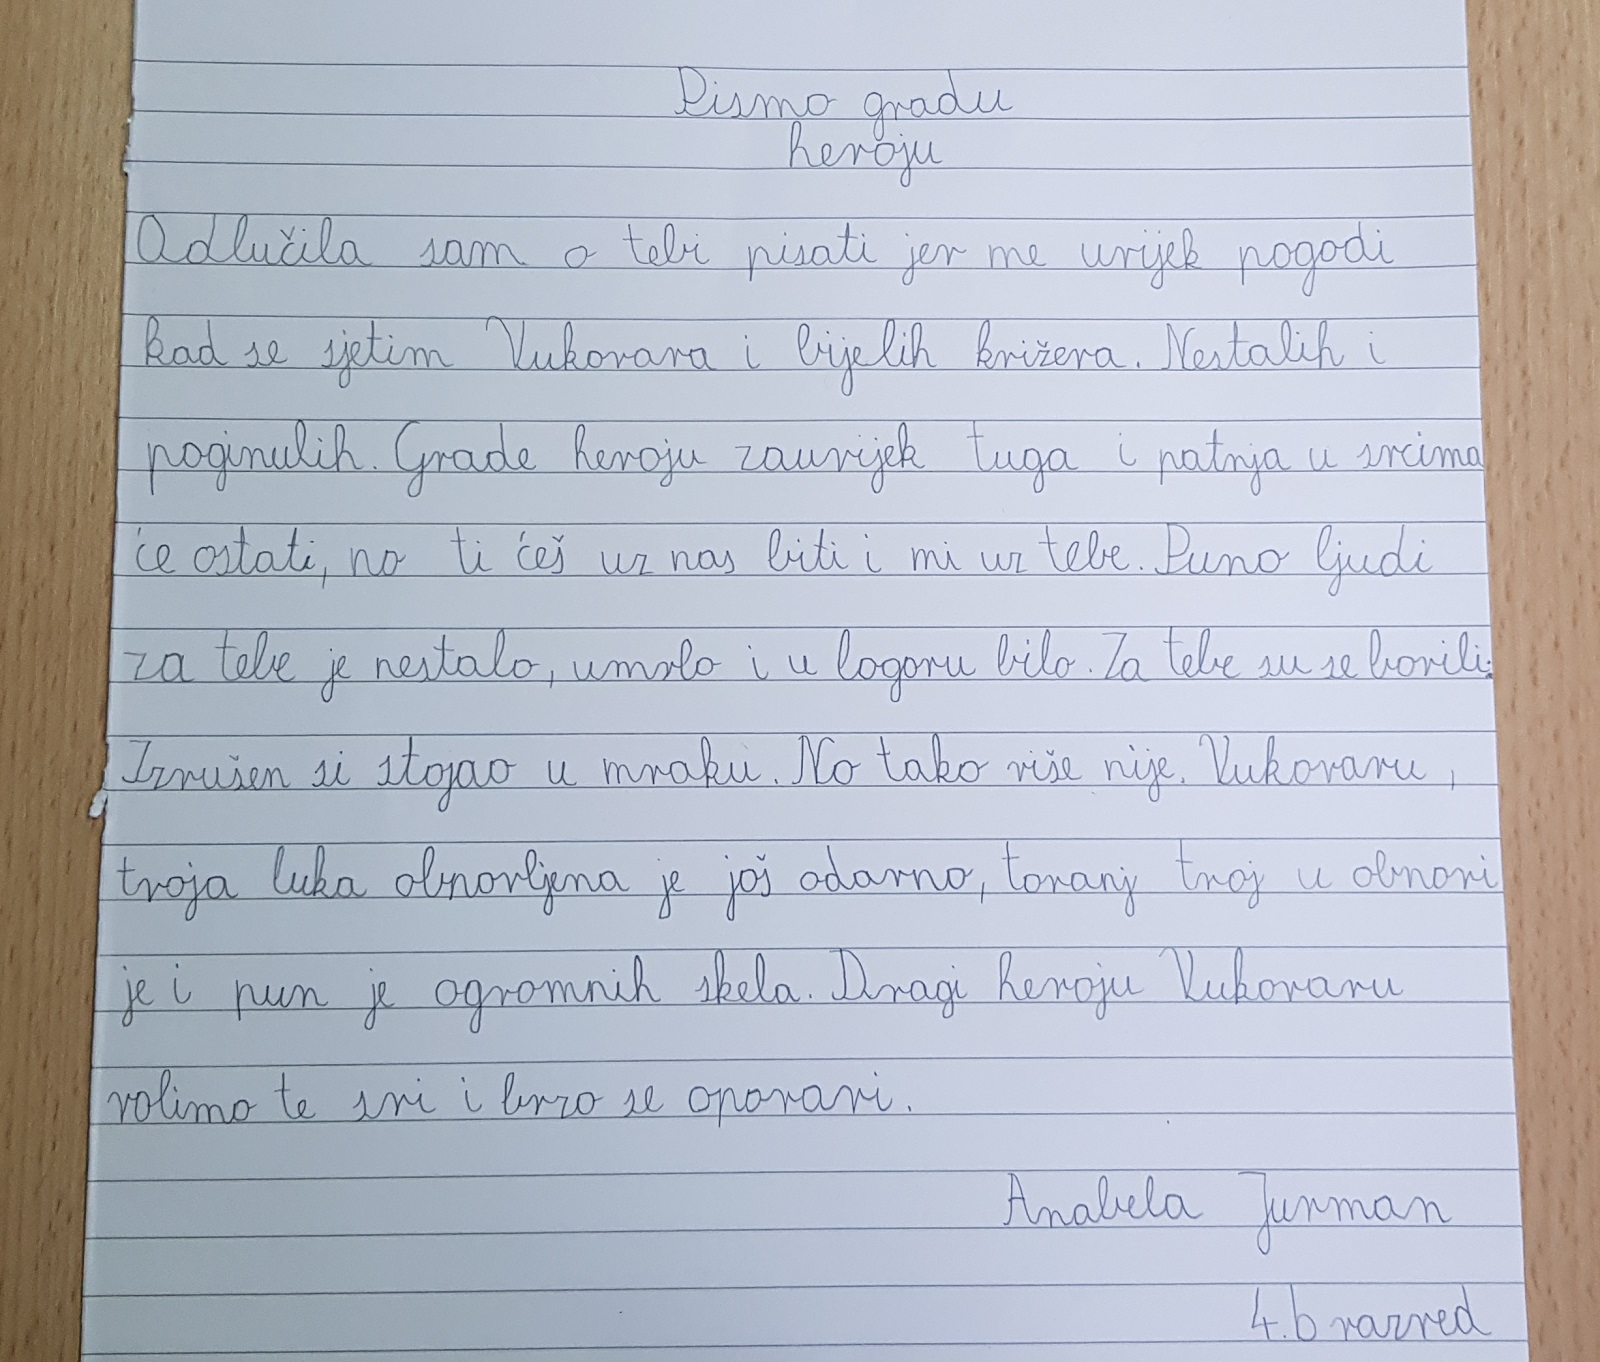 Pismo gradu
heroju
Odlučila sam o tebi pisati jer me uvijek pogodi
kad se sjetim Vukovara i bijelih križeva. Nestalih i
poginulih. Grade heroju zauvijek tuga i patnja u srcima
će ostati, no ti ćeš uz nas biti i mi uz tebe. Puno ljudi
za tebe je nestalo, umrlo i u logoru bilo. Za tebe su se borili.
Izrušen si stojao u mraku. No tako više nije. Vukovaru,
tvoja luka obnovljena je još odavno, toranj tvoj u obnovi
je i pun je ogromnih skela. Dragi heroju Vukovaru
volimo te svi i brzo se oporavi.
Anabela Jurman
4.b razred